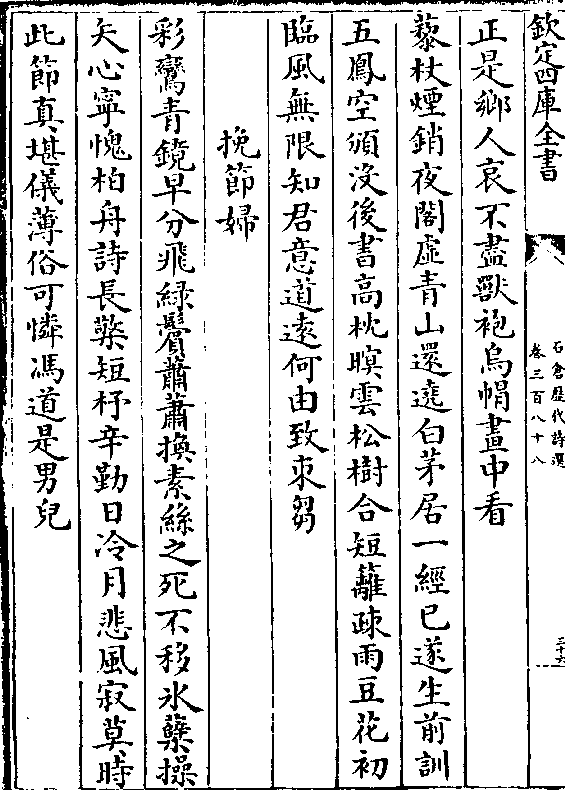 欽定四庫全書
石倉歷代詩選
卷三百八十八
三十六
正是鄉人哀不盡獸袍烏帽畫中看
藜杖煙銷夜閣虛青山還遶白茅居一經已遂生前訓
五鳳空頒沒後書高枕暝雲松樹合短籬疎雨豆花初
臨風無限知君意道逺何由致束芻
挽節婦
彩鸞青鏡早分飛綠鬢蕭蕭換素絲之死不移氷蘗操
矢心寧愧柏舟詩長檠短杼辛勤日冷月悲風寂莫時
此節真堪儀薄俗可憐馮道是男兒